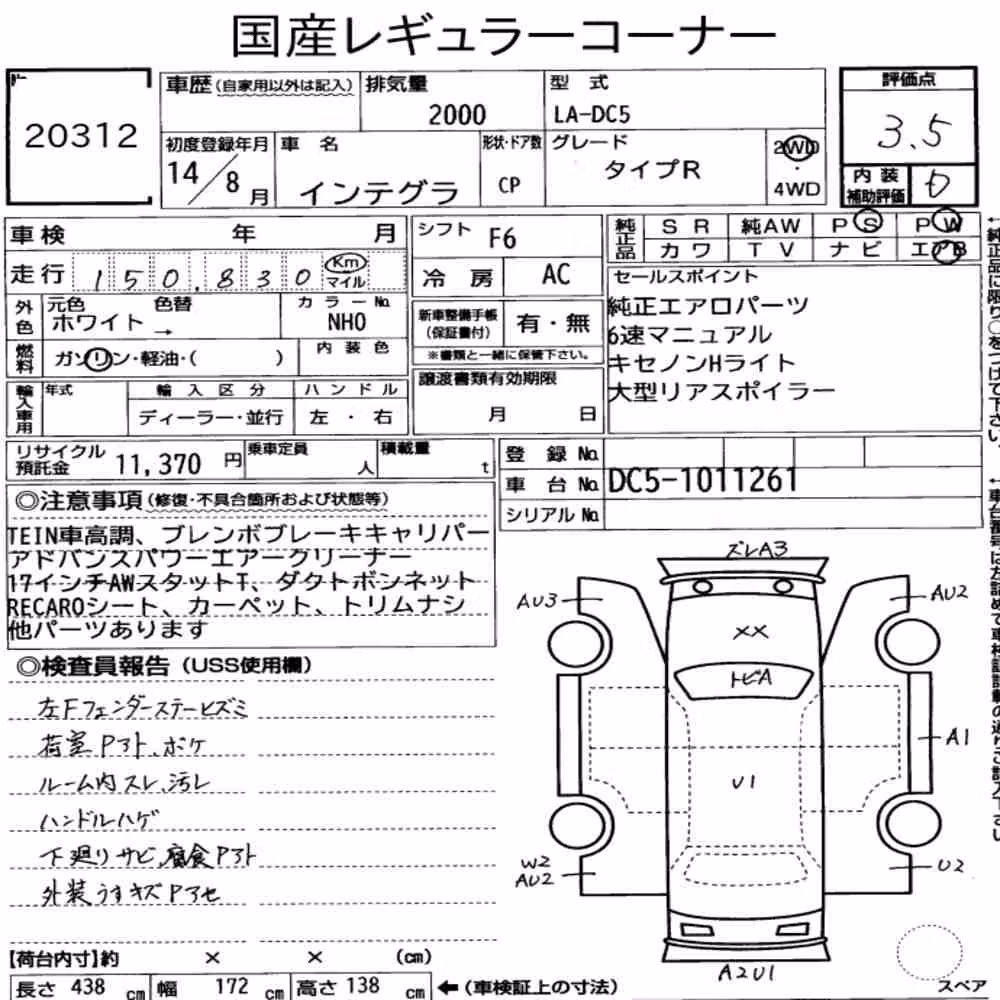 国産レギュラーコーナー
20312
車歴(自家用以外は記入) 排気量 2000 型式 LA-DC5
評価点 3.5
初度登録年月 14/8月 車名 インテグラ 形状・ドア数 CP グレード タイプR 2WD・4WD
内装補助評価 D
車検 年 月
走行 150,830 Km マイル
シフト F6
冷房 AC
純正品 SR 純AW PS PW
カワ TV ナビ エアB
外色 元色 ホワイト → 色替 カラーNo. NHO
燃料 ガソリン・軽油・( ) 内装色
新車整備手帳(保証書付) 有・無
※書類と一緒に保管下さい。
輸入車用 年式 輸入区分 ハンドル
ディーラー・並行 左・右
譲渡書類有効期限
月 日
セールスポイント
純正エアロパーツ
6速マニュアル
キセノンHライト
大型リアスポイラー
リサイクル預託金 11,370円 乗車定員 人 積載量 t
登録No.
車台No. DC5-1011261
シリアルNo.
◎注意事項(修復・不具合箇所および状態等)
TEIN車高調、ブレンボブレーキキャリパー
アドバンスパワーエアークリーナー
17インチAWスタットT、ダクトボンネット
RECAROシート、カーペット、トリムナシ
他パーツあります
◎検査員報告(USS使用欄)
左Fフェンダーステーヒズミ
荷室Pアト、ボケ
ルーム内スレ、汚レ
ハンドルハゲ
下廻りサビ、腐食Pアト
外装うすキズPアセ
ズレA3
AU3
AU2
XX
トビA
A1
U1
W2
AU2
U2
A2U1
スペア
【荷台内寸】約 × × (cm)
長さ 438cm 幅 172cm 高さ 138cm ←(車検証上の寸法)